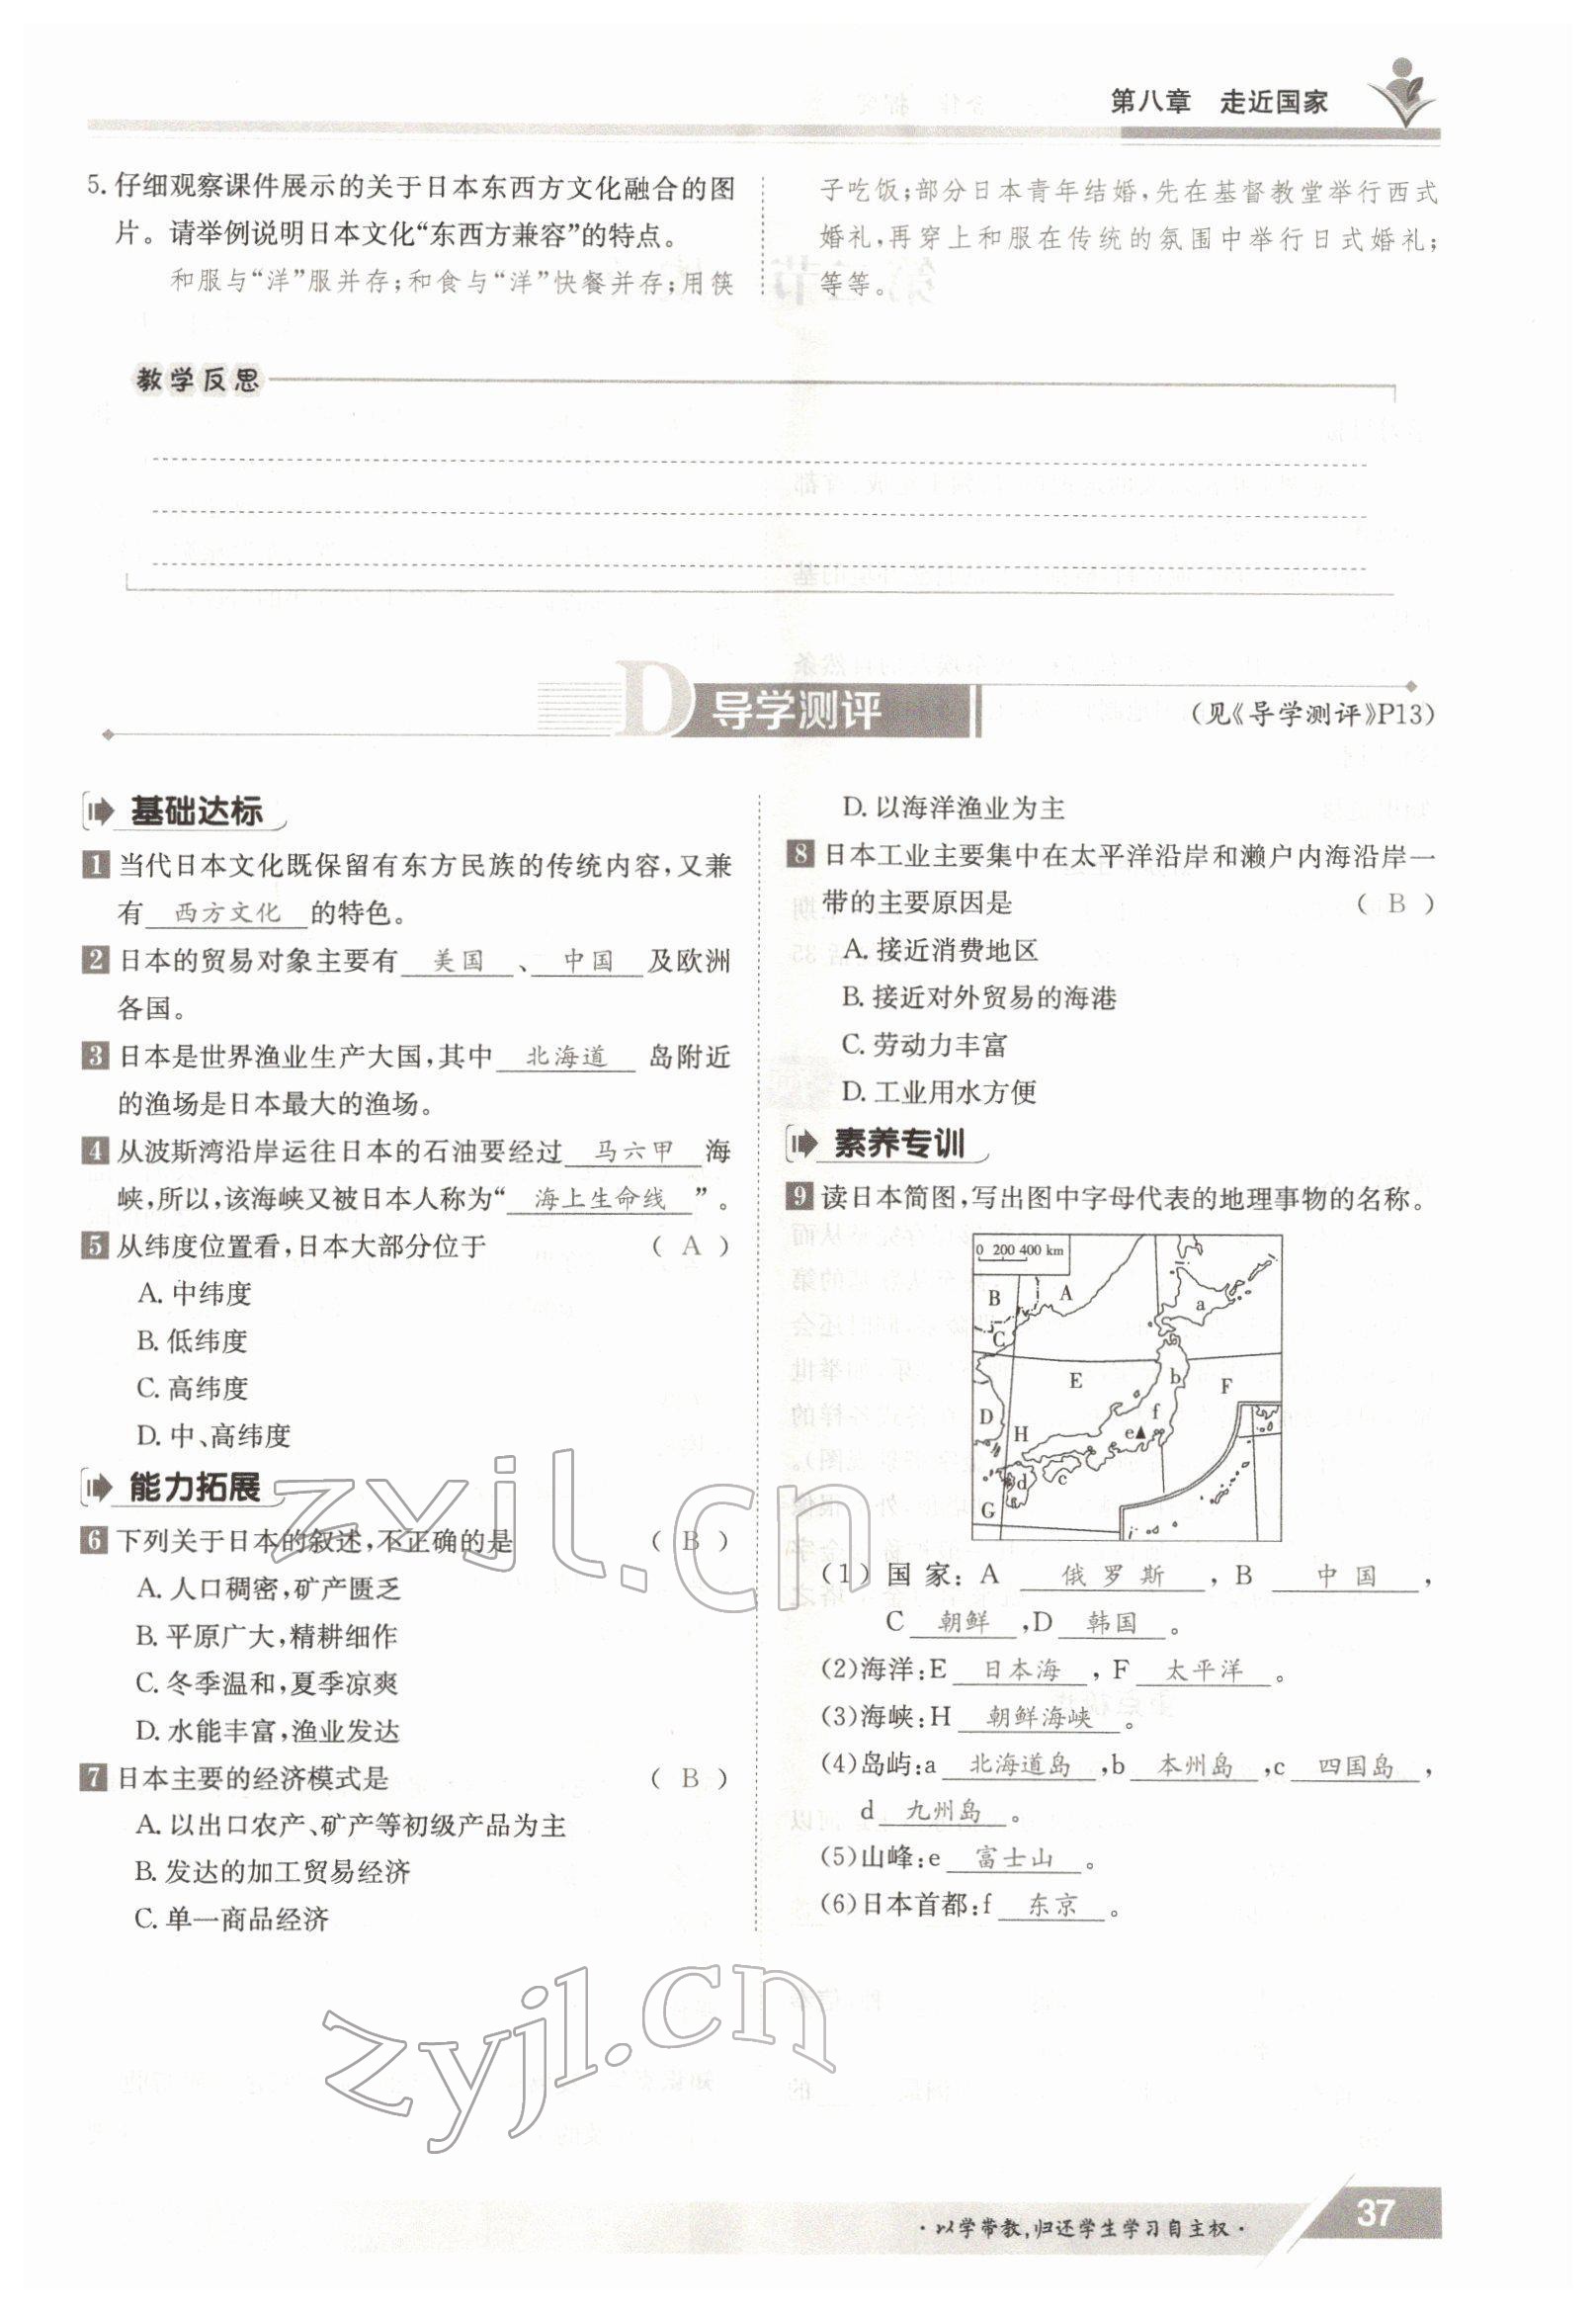 第八章 走近国家
5. 仔细观察课件展示的关于日本东西方文化融合的图
片。请举例说明日本文化“东西方兼容”的特点。
和服与“洋”服并存;和食与“洋”快餐并存;用筷
子吃饭;部分日本青年结婚,先在基督教堂举行西式
婚礼,再穿上和服在传统的氛围中举行日式婚礼;
等等。
教学反思
D 导学测评
(见《导学测评》P13)
基础达标
1 当代日本文化既保留有东方民族的传统内容,又兼
有 西方文化 的特色。
2 日本的贸易对象主要有 美国 、 中国 及欧洲
各国。
3 日本是世界渔业生产大国,其中 北海道 岛附近
的渔场是日本最大的渔场。
4 从波斯湾沿岸运往日本的石油要经过 马六甲 海
峡,所以,该海峡又被日本人称为“ 海上生命线 ”。
5 从纬度位置看,日本大部分位于 ( A )
A. 中纬度
B. 低纬度
C. 高纬度
D. 中、高纬度
能力拓展
6 下列关于日本的叙述,不正确的是 ( B )
A. 人口稠密,矿产匮乏
B. 平原广大,精耕细作
C. 冬季温和,夏季凉爽
D. 水能丰富,渔业发达
7 日本主要的经济模式是 ( B )
A. 以出口农产、矿产等初级产品为主
B. 发达的加工贸易经济
C. 单一商品经济
D. 以海洋渔业为主
8 日本工业主要集中在太平洋沿岸和濑户内海沿岸一
带的主要原因是 ( B )
A. 接近消费地区
B. 接近对外贸易的海港
C. 劳动力丰富
D. 工业用水方便
素养专训
9 读日本简图,写出图中字母代表的地理事物的名称。
0 200 400 km
B A a
C
E b F
D f
H e
d c
G
(1) 国家: A 俄罗斯 , B 中国 ,
C 朝鲜 ,D 韩国 。
(2)海洋:E 日本海 , F 太平洋 。
(3)海峡:H 朝鲜海峡 。
(4)岛屿:a 北海道岛 ,b 本州岛 ,c 四国岛 ,
d 九州岛 。
(5)山峰:e 富士山 。
(6)日本首都:f 东京 。
zyjl.cn
zyjl.cn
·以学带教,归还学生学习自主权·
37